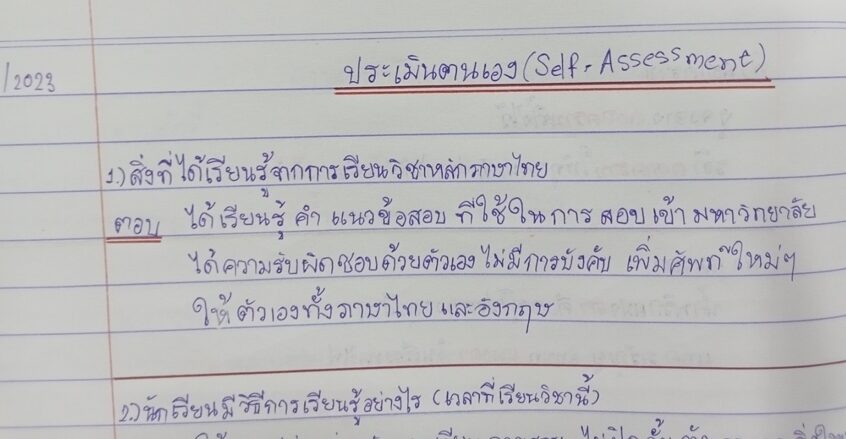 /2023
ประเมินตนเอง (Self-Assessment)
1.) สิ่งที่ได้เรียนรู้จากการเรียนวิชาหลักภาษาไทย
ตอบ ได้เรียนรู้ คำ แนวข้อสอบ ที่ใช้ในการสอบเข้ามหาวิทยาลัย
ได้ความรับผิดชอบด้วยตัวเอง ไม่มีการบังคับ เพิ่มศัพท์ใหม่ๆ
ให้ตัวเองทั้งภาษาไทย และอังกฤษ
2.) นักเรียนมีวิธีการเรียนรู้อย่างไร (เวลาที่เรียนวิชานี้)